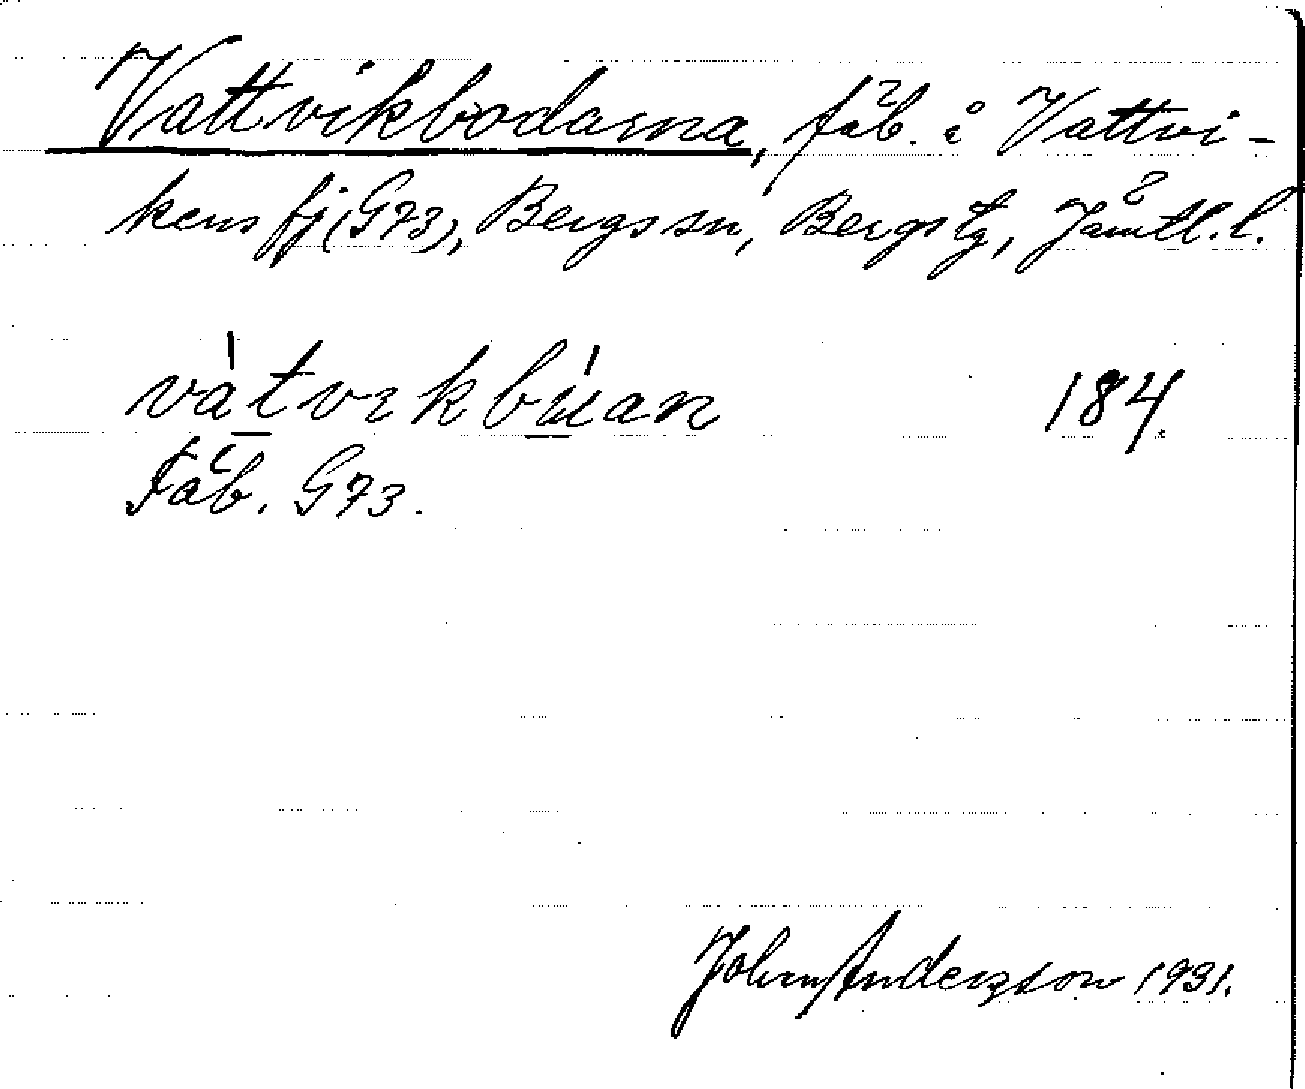 Vattvikbodarna, fäb. i Vattvi-
kens fj (G73), Bergs sn, Bergs tg, Jämtl. l.
và̱tvɪkbú̱an 184.
Fäb. G73.
John Anderzson 1931.